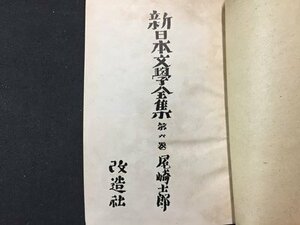 新日本文學全集
第六巻 尾崎士郎
改造社